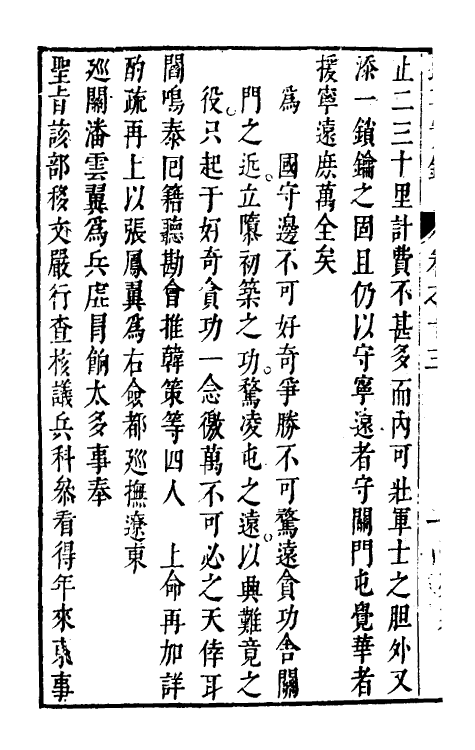 止二三十里計費不甚多而內可壯軍士之胆外又
添一鎖鑰之固且仍以守寧遠者守關門屯覺華者
援寧遠庶萬全矣
爲　國守邊不可好奇爭勝不可騖遠貪功舍關
門之近立隳初築之功騖凌屯之遠以典難竟之
役只起于好奇貪功一念徼萬不可必之天倖耳
閻鳴泰囘籍聽勘會推韓策等四人　上命再加詳
酌疏再上以張鳳翼爲右僉都廵撫遼東
廵關潘雲翼爲兵虛冐餉太多事奉
聖旨該部移文嚴行查核議兵科叅看得年來東事
卷之十三